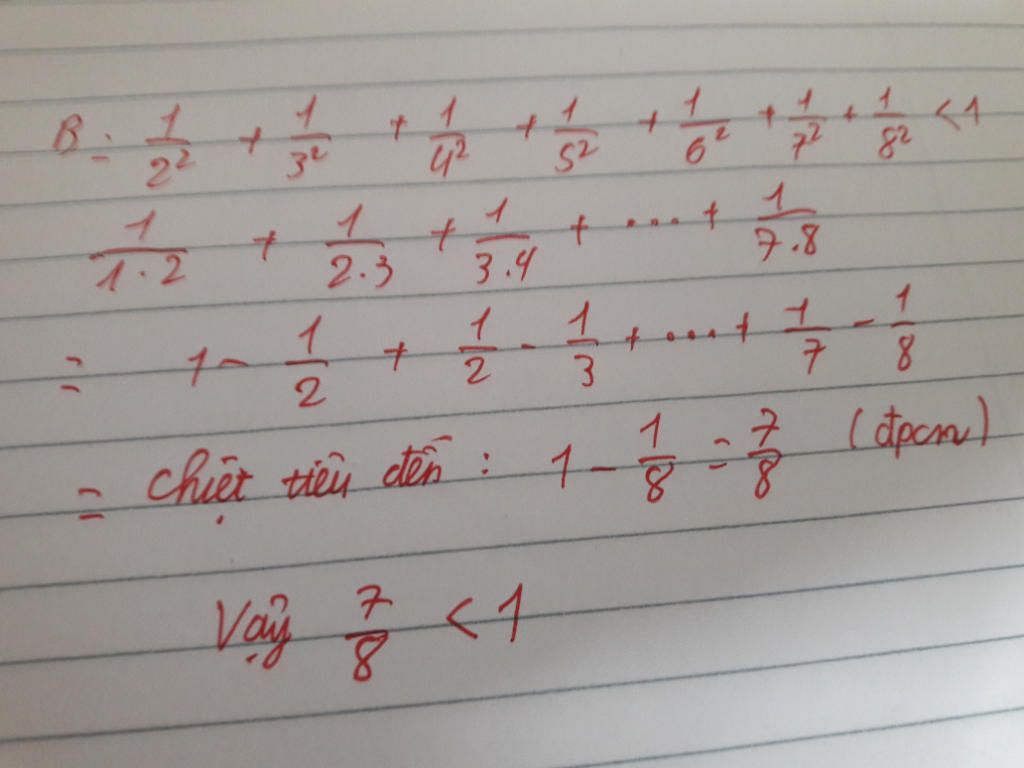 B = 1/2² + 1/3² + 1/4² + 1/5² + 1/6² + 1/7² + 1/8² < 1
1/1.2 + 1/2.3 + 1/3.4 + ... + 1/7.8
= 1 - 1/2 + 1/2 - 1/3 + ... + 1/7 - 1/8
= Chiệt tiêu đến : 1 - 1/8 = 7/8 (đpcm)
Vậy 7/8 < 1